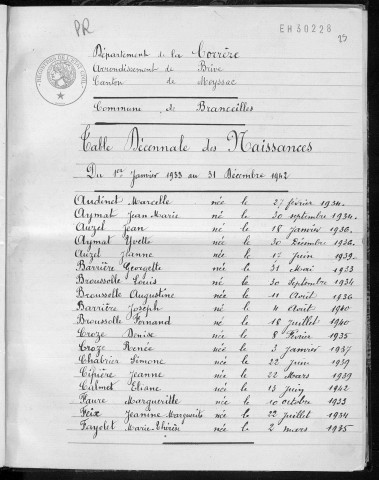 PR
EH30228
25
Département de la Corrèze
Arrondissement de Brive
Canton de Meyssac
Commune de Branceilles
Table Décennale des Naissances
Du 1er Janvier 1933 au 31 Décembre 1942
Audinet Marcelle née le 27 février 1934.
Aymat Jean Marie né le 30 septembre 1934.
Auzel Jean né le 18 Janvier 1936.
Aymat Yvette née le 30 Décembre 1936.
Auzel Jeanne née le 17 Juin 1939.
Barrière Georgette née le 31 Mai 1933
Broussolle Louis né le 30 Septembre 1934
Broussolle Augustine née le 11 Août 1936
Barrière Joseph né le 4 Août 1940
Broussolle Fernand né le 18 Juillet 1940
Croze Denise née le 8 Février 1935
Croze Renée née le 3 Janvier 1937
Chabrier Simone née le 22 Juin 1939
Cipière Jeanne née le 22 Mars 1939
Calmet Eliane née le 13 Juin 1942
Faure Marguerite née le 10 octobre 1933
Feix Jeanine Marguerite née le 22 Juillet 1934
Fayolet Marie-Thérèse née le 2 mars 1935